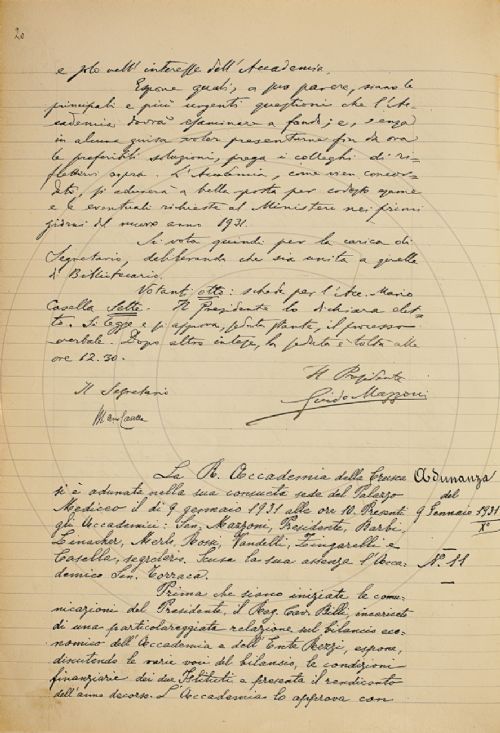 20
e solo nell'interesse dell'Accademia.
Espone quali, a suo parere, siano le
principali e più urgenti questioni che l'Ac-
cademia dovrà esaminare a fondo; e, senza
in alcuna guisa voler presentarne fin da ora
le preferibili soluzioni, prega i colleghi di ri-
flettervi sopra. L'Accademia, come vien concor-
dato, si adunerà a bella posta per codesto esame
e le eventuali richieste al Ministero nei primi
giorni del nuovo anno 1931.
Si vota quindi per la carica di
Segretario, deliberando che sia unita a quella
di Bibliotecario.
Votanti otto: schede per l'Acc. Mario
Casella sette. Il Presidente lo dichiara elet-
to. Si legge e si approva, seduta stante, il processo
verbale. Dopo altre intese, la seduta è tolta alle
ore 12.30.
Il Presidente
Guido Mazzoni
Il Segretario
Mario Casella
La R. Accademia della Crusca
si è adunata nella sua consueta sede del Palazzo
Mediceo il dì 9 gennaio 1931 alle ore 10. Presenti
gli Accademici: Sen. Mazzoni, Presidente, Barbi,
Linacher, Merlo, Rossi, Vandelli, Zingarelli e
Casella, segretario. Scusa la sua assenza l'Acca-
demico Sen. Torraca.
Adunanza
del
9 Gennaio 1931
Xº
N. 11
Prima che siano iniziate le comu-
nicazioni del Presidente, il Rag. Cav. Billi, incaricato
di una particolareggiata relazione sul bilancio eco-
nomico dell'Accademia e dell'Ente Rezzi, espone,
discutendo le varie voci del bilancio, le condizioni
finanziarie dei due Istituti e presenta il rendiconto
dell'anno decorso. L'Accademia lo approva con